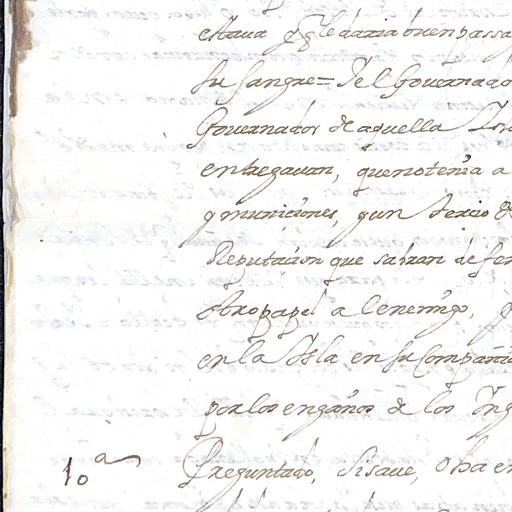 estaua q̃ le daria buen passa
su sangre = Y el Gouernado
Gouernador de aquella Isl
entregauan, que no tenia a
y municiones, y un tercio de
Reputacion que sabran defen
otro papel al enemigo,
en la Isla en su compañia
por los engaños de los Ing
10ª Preguntado, si saue, o ha en